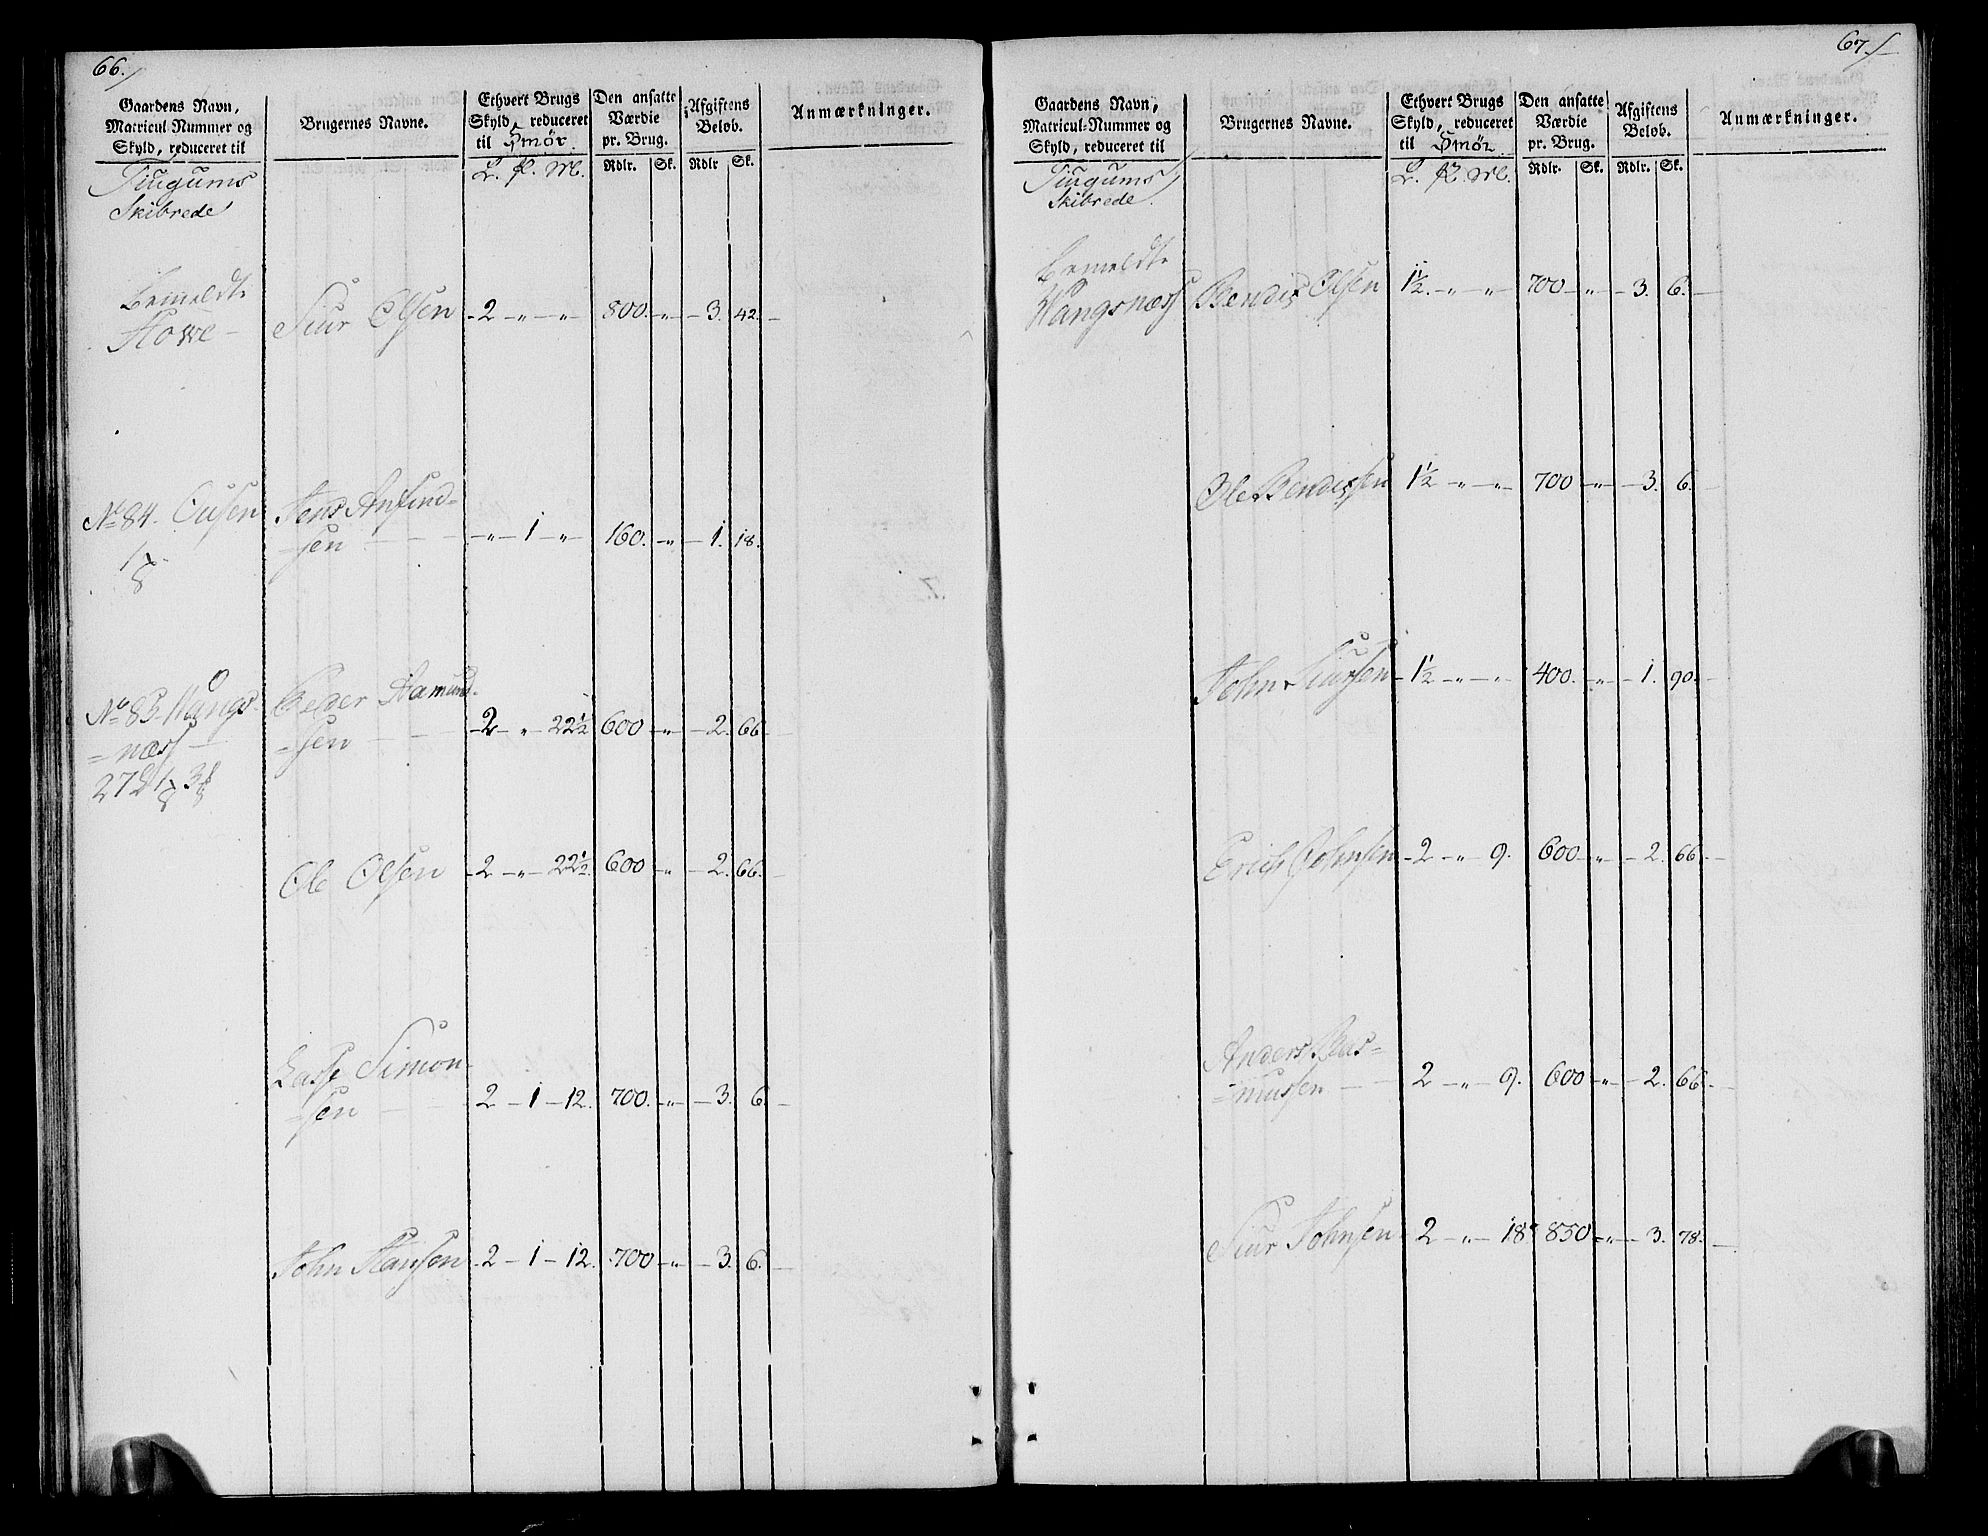 66.
Gaardens Navn,
Matricul-Nummer og
Skyld, reduceret til
Brugernes Navne.
Ethvert Brugs
Skyld, reduceret
til Smør
Den ansatte
Værdie
pr. Brug.
Afgiftens
Beløb.
Anmærkninger.
L. p. Ml. Rdlr. Sk. Rdlr Sk.
Tiugums
Skibrede
Bemeldte
Howe Siur Olsen 2 - „ - „ 800. - „ - 3. 42.
No 84. Ousen Jens Anfind-
sen - „ - 1 - „ 160. - „ - 1. 18.
No 85. Wangs-
næss Peder Aamund-
sen 2 - „ - 22½ 600 - „ - 2. 66
Ole Olsen 2 - „ - 22½. 600 „ - 2. 66.
Lasse Simon-
sen 2 - 1 - 12. 700. - „ - 3. 6.
John Hansen 2 - 1 - 12. 700 - „ - 3. 6.
67.
Gaardens Navn,
Matricul-Nummer og
Skyld, reduceret til
Brugernes Navne.
Ethvert Brugs
Skyld, reduceret
til Smør
Den ansatte
Værdie
pr. Brug.
Afgiftens
Beløb.
Anmærkninger.
L. p. Ml. Rdlr. Sk. Rdlr. Sk.
Tiugums
Skibrede.
Bemeldte
Wangsnæss Bendix Olsen 1½. - „ - „ 700 - „ - 3. 6.
Ole Bendixsen 1½ - „ - „ 700 - „ - 3. 6.
John Siursen 1½ - „ - „ 400. - „ - 1. 90.
Erich Johnsen 2 - „ - 9. 600 - „ - 2. 66
Anders Ras-
mussen 2 - „ - 9. 600 - „ - 2. 66
Siur Johnsen 2 - „ - 18 850 - „ - 3. 78.